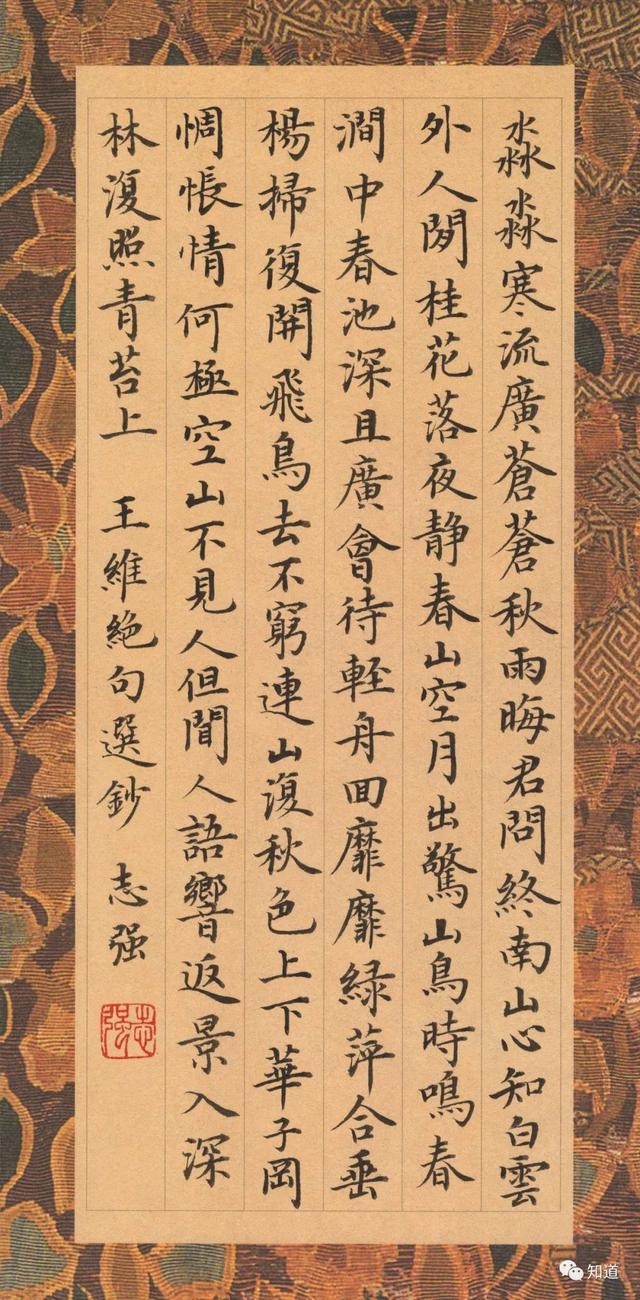 淼淼寒流廣蒼蒼秋雨晦君問終南山心知白雲
外人閒桂花落夜静春山空月出驚山鳥時鳴春
澗中春池深且廣會待輕舟回靡靡緑萍合垂
楊掃復開飛鳥去不窮連山復秋色上下華子岡
惆悵情何極空山不見人但聞人語響返景入深
林復照青苔上 王維絶句選鈔 志强
志强
知道